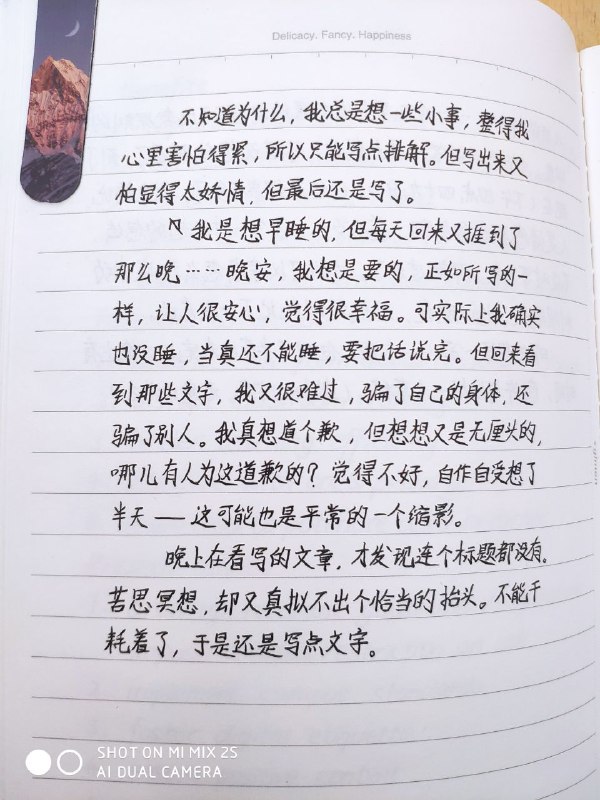 Delicacy. Fancy. Happiness
不知道为什么，我总是想一些小事，整得我
心里害怕得紧，所以只能写点排解。但写出来又
怕显得太娇情，但最后还是写了。
我是想早睡的，但每天回来又捱到了
那么晚……晚安，我想是要的，正如所写的一
样，让人很安心，觉得很幸福。可实际上我确实
也没睡，当真还不能睡，要把话说完。但回来看
到那些文字，我又很难过，骗了自己的身体，还
骗了别人。我真想道个歉，但想想又是无厘头的，
哪儿有人为这道歉的？觉得不好，自作自受想了
半天——这可能也是平常的一个缩影。
晚上在看写的文章，才发现连个标题都没有。
苦思冥想，却又真拟不出个恰当的抬头。不能干
耗着了，于是还是写点文字。
SHOT ON MI MIX 2S
AI DUAL CAMERA